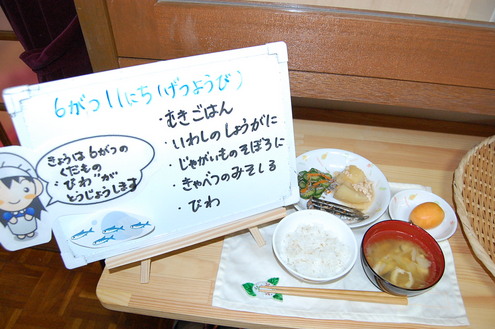 6がつ11にち(げつようび)
・むぎごはん
・いわしのしょうがに
・じゃがいものそぼろに
・きゃべつのみそしる
・びわ
きょうは6がつの
くだもの
"びわ"が
とうじょうします